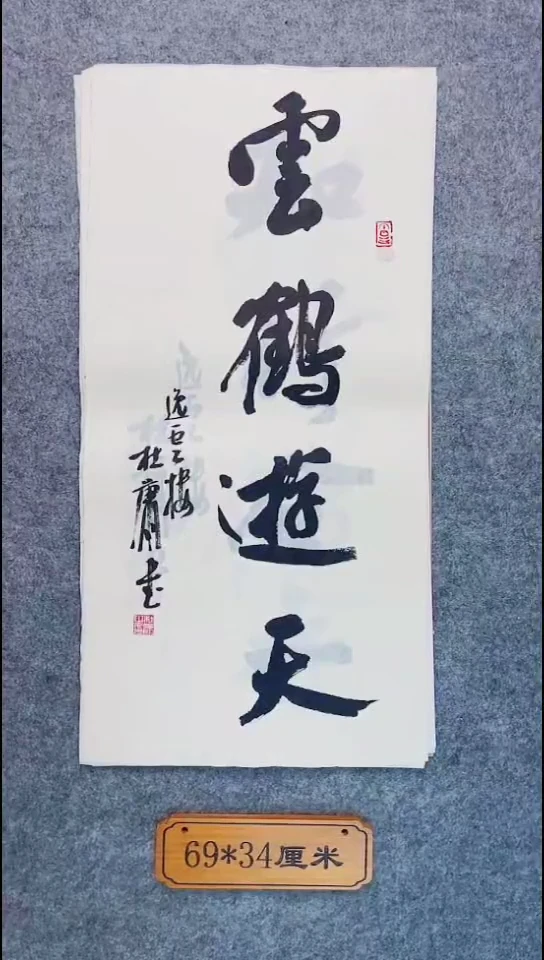 雲鶴遊天
逸雲樓
杜庸書
69*34厘米